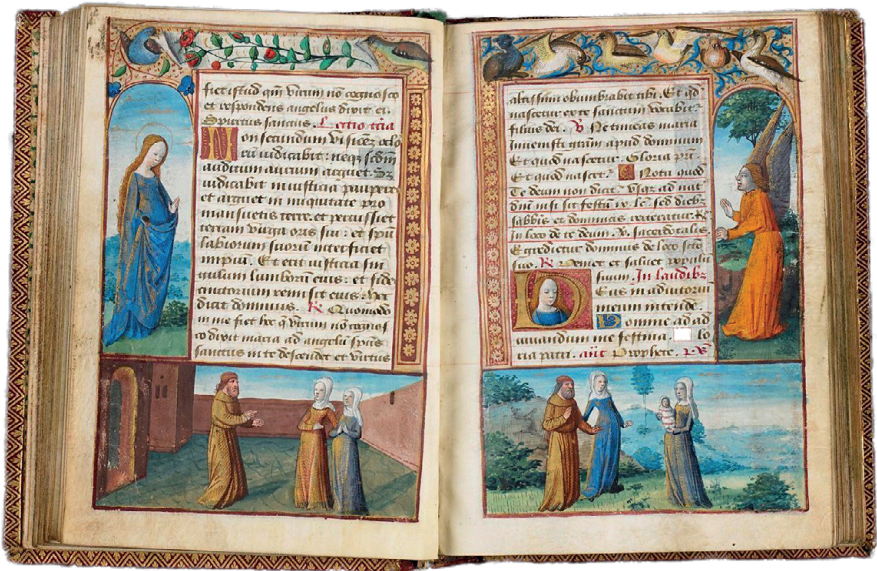 fiet istud qm̄ virum nō cognosco
et respondens angelus dixit ei.
Spiritus sanctus. Lectio t̄cia
Non secundum visionē oculo
rū iudicabit: neqz scdm̄
auditum aurium arguet. Sz
iudicabit in iusticia pauperes
et arguet in equitate pro
mansuetis terre. et percuciet
terram virga oris sui: et spū
labiorum suorum interficiet
impiū. Et erit iusticia cin
gulum lumborum eius: et fides
cinctorium renum eius.
dicit dominus. R. Quomodo
in me fiet hoc q̄ virum nō cognos
co dixit maria ad angelū spūs
sanctus in te descendet et virtus
altissimi obumbrabit tibi. Et qd̄
nascetur ex te sanctum vocabitur
filius dei. V. Ne timeas maria
invenisti grām apud dominum
Et quod nascetur. Gloria pr̄i.
Et quod nascet. Nota quod
Te deum non dicit
sabbis et dominicis
in loco de te deum. V. sacerdotalis
Egredietur dominus de loco sc̄to
suo. R. Veniet et salvet populū
suum. In laudibz
Deus in adiutoriū
meum intende.
Domine ad ad
iuvandum me festina. lo
ria patri. ane. Prophete